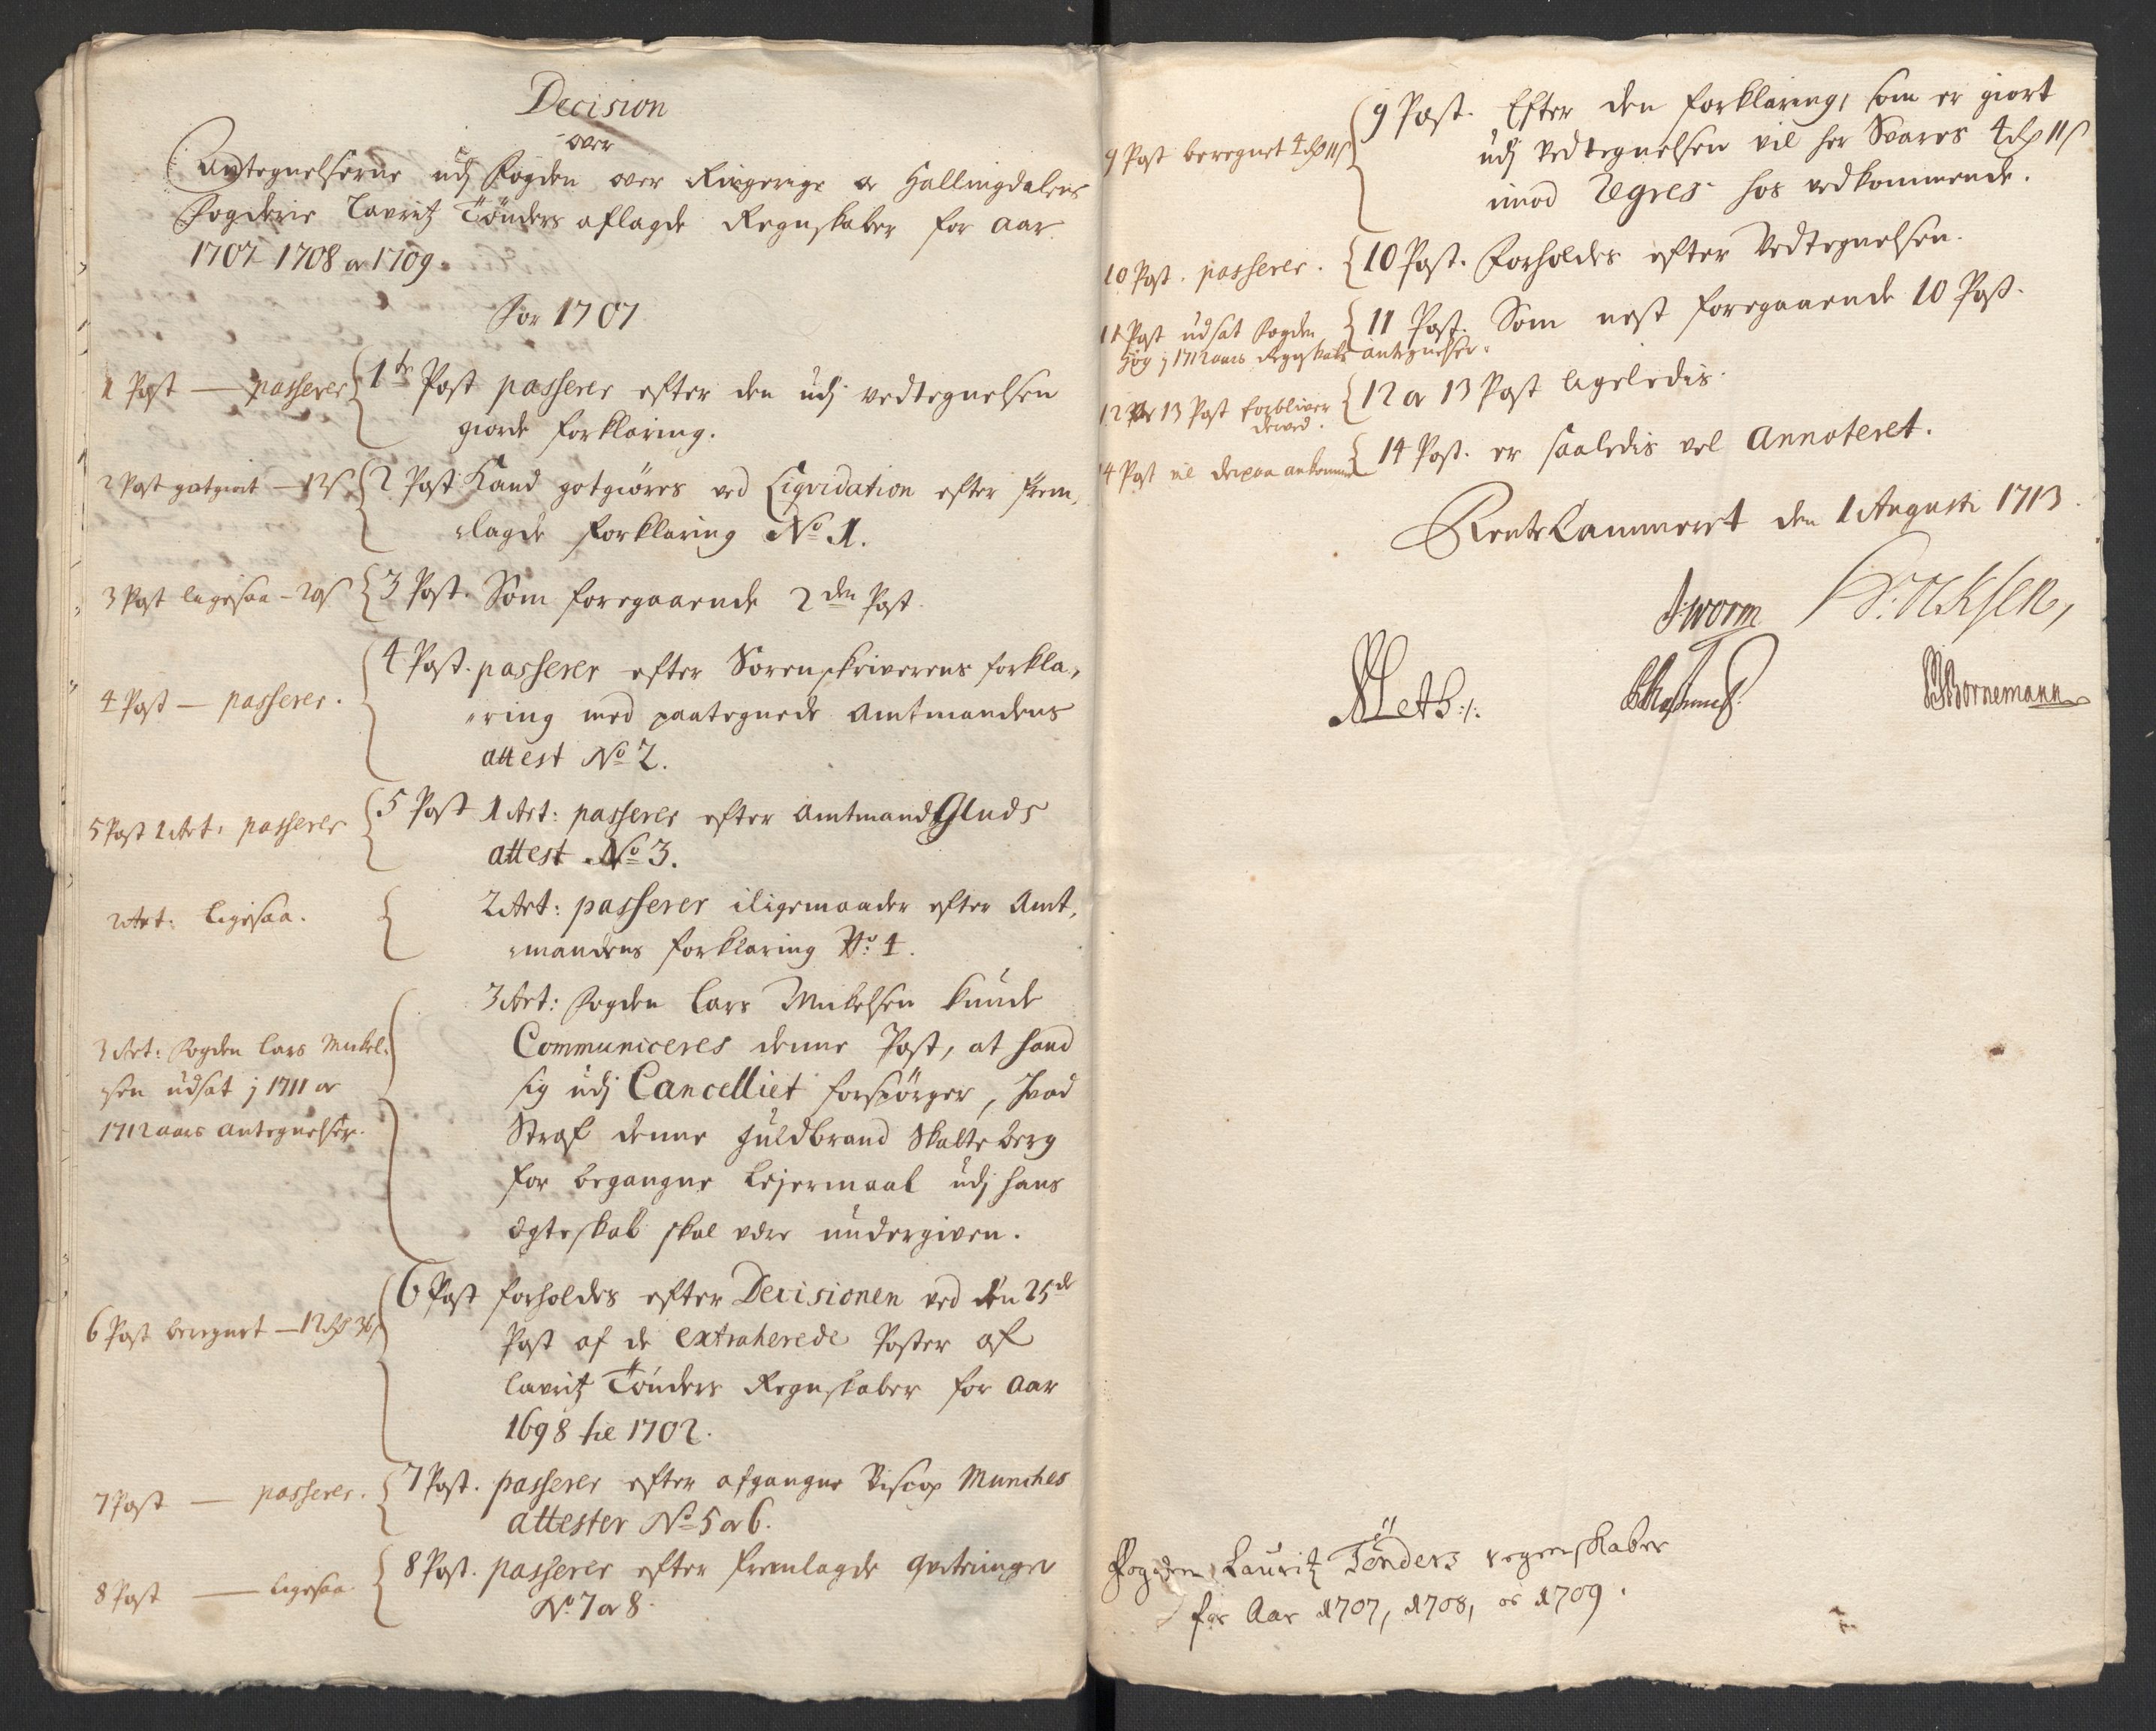 Decision
over
Antegnelserne udj Fogden over Ringerige oc Hallingdalens
Fogderie Lavritz Tønders aflagde Regnskaber for Aar
1707 1708 oc 1709.
For 1707
1 Post — passerer
1te Post passerer efter den udj vedtegnelsen
giorde forklaring.
2 Post gotgiort — 12 s
2 Post Kand gotgiøres ved Liqvidation efter frem,
lagde forklaring No 1.
3 Post ligesaa
3 Post. Som foregaaende 2den Post.
4 Post — passerer.
4 Post. passerer efter Sorenskriverens forkla,
ring med paategnede Amtmandens
attest No 2.
5 Post 1 Art: passerer
5 Post 1 Art: passerer efter Amtmand Gluds
attest No 3.
2 Art: ligesaa.
2 Art: passerer iligemaader efter Amt,
mandens forklaring No: 4.
3 Art: Fogden Lars Mickel,
sen udsat j 1711 oc
1712 aars antegnelser.
3 Art: Fogden Lars Mickelsen kunde
Communiceres denne Post, at hand
sig udj Cancelliet forspörger, hvad
Straf denne Guldbrand Skalteberg
for begangne Lejermaal udj hans
ægteskab skal være undergiven.
6 Post beregnet — 12 rdr 36 s
6 Post forholdes efter Decisionen ved den 25de
Post af de extraherede Poster af
Lavritz Tønders Regnskaber for Aar
1698 til 1702.
7 Post — passerer.
7 Post. passerer efter afgangne Biscop Munches
attester No 5 oc 6.
8 Post — ligesaa
8 Post. passerer efter fremlagde qviteringer
No 7 oc 8.
9 Post beregnet 4 rdr 11 s
9 Post. Efter den forklaring, som er giort
udj vedtegnelsen vil her Svares 4 rdr 11 s
imod Regres hos vedkommende.
10 Post. passerer.
10 Post. Forholdes efter Vedtegnelsen.
11 Post udsat Fogden
j 1712 aars Regnskabs antegnelser.
11 Post. Som nest foregaaende 10 Post.
12 oc 13 Post forbliver
derved.
12 oc 13 Post ligeledis.
14 Post vil derpaa ankomme
14 Post. er saaledis vel Annoteret.
RenteCammeret den 1 Augusti 1713.
JWorm
Bornemann
Fogden Lauritz Tønders regenskaber
for Aar 1707, 1708, oc 1709.